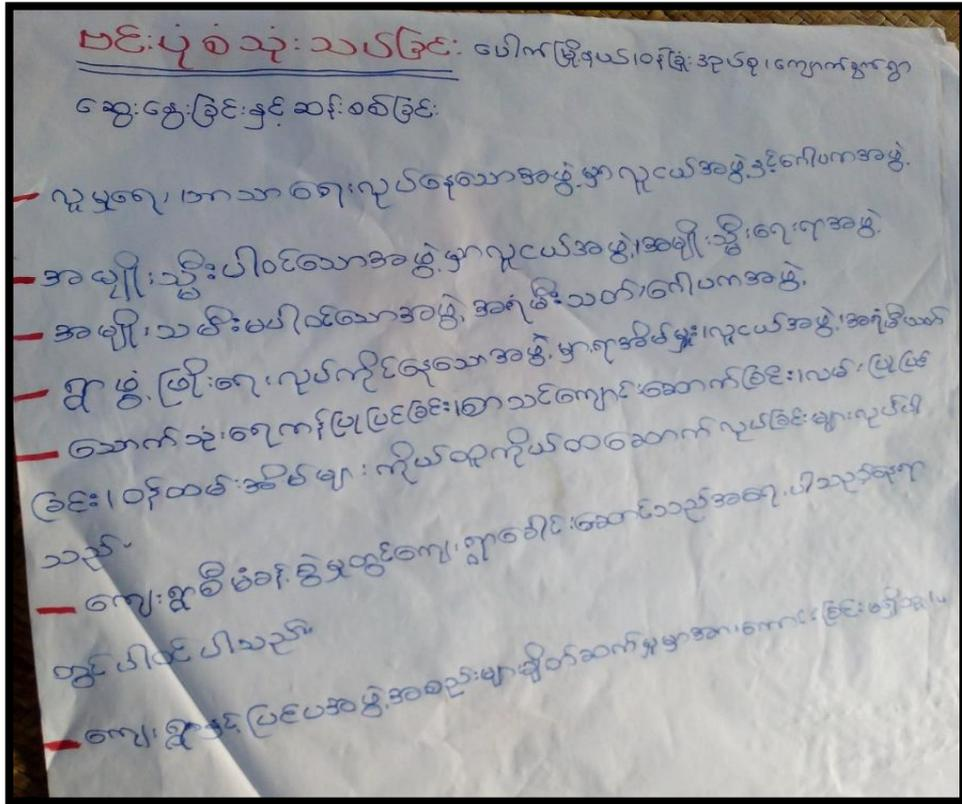 ဗင်းပုံစံသုံးသပ်ခြင်း ပေါက်မြို့နယ်၊ ဝန်ခြုံးအုပ်စု၊ ကျောက်နွက်ရွာ
ဆွေးနွေးခြင်းနှင့် ဆန်းစစ်ခြင်း
- လူမှုရေး၊ ဘာသာရေးလုပ်နေသောအဖွဲ့မှာ လူငယ်အဖွဲ့နှင့်ဂေါပကအဖွဲ့
- အမျိုးသ္မီးပါဝင်သောအဖွဲ့မှာ လူငယ်အဖွဲ့၊ အမျိုးသ္မီးရေးရာအဖွဲ့
- အမျိုးသမီးမပါဝင်သောအဖွဲ့ အရံမီးသတ်၊ ဂေါပကအဖွဲ့
- ရွာဖွံ့ဖြိုးရေးလုပ်ကိုင်နေသောအဖွဲ့မှာ ရာအိမ်မှူး၊ လူငယ်အဖွဲ့၊ အရံမီးသတ်
- သောက်သုံးရေကန်ပြုပြင်ခြင်း၊ စာသင်ကျောင်းဆောက်ခြင်း၊ လမ်းပြုပြင်
ခြင်း၊ ဝန်ထမ်းအိမ်များ ကိုယ်ထူကိုယ်ထဆောက်လုပ်ခြင်းများလုပ်ပါ
သည်။
- ကျေးရွာစီမံခန့်ခွဲမှုတွင် ကျေးရွာခေါင်းဆောင်သည်အရေးပါသည့်နေရာ
တွင်ပါဝင်ပါသည်။
- ကျေးရွာနှင့် ပြင်ပအဖွဲ့အစည်းများချိတ်ဆက်မှုမှာအားကောင်းခြင်းမရှိ